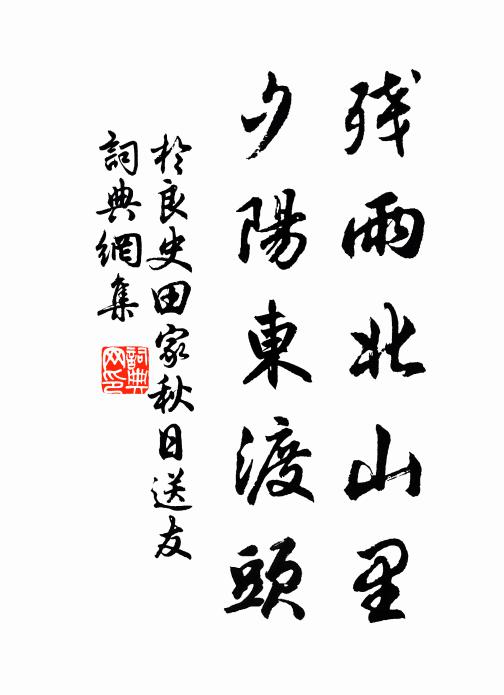 残雨北山里
夕陽東渡頭
於良史田家秋日送友
詞典網集
詞典
网印